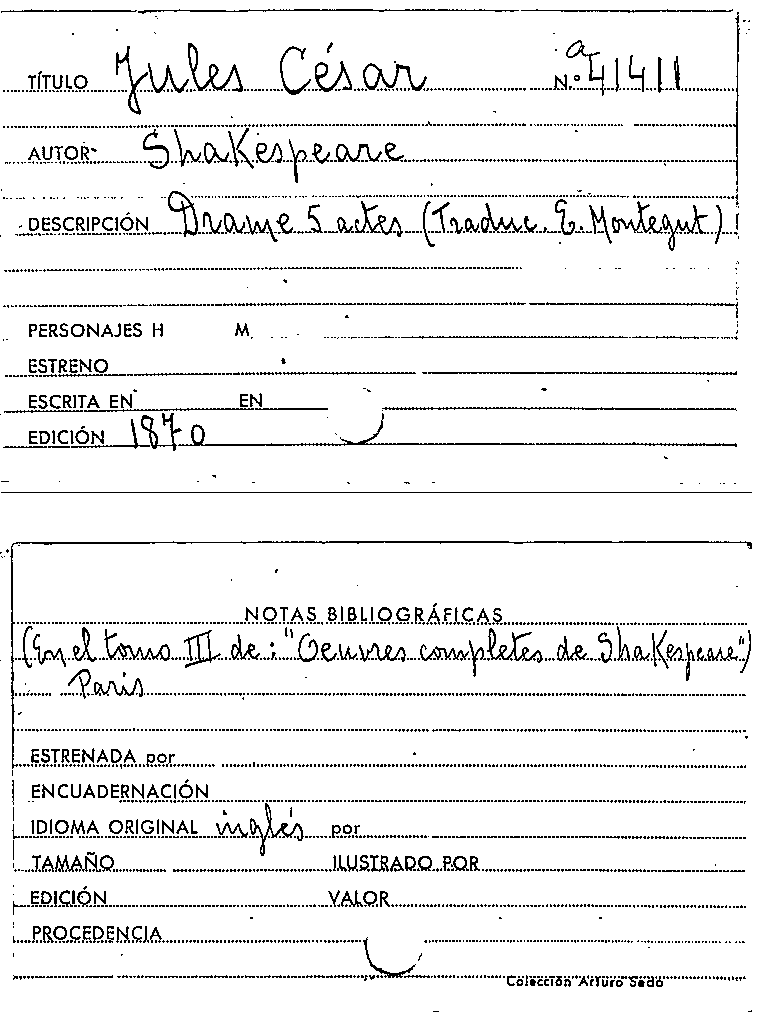 TÍTULO Jules César N.º a 41411
AUTOR Shakespeare
DESCRIPCIÓN Drame 5 actes (Traduc. E. Montegut)
PERSONAJES H M.
ESTRENO
ESCRITA EN EN
EDICIÓN 1870
NOTAS BIBLIOGRÁFICAS
(En el tomo III de: "Oeuvres completes de Shakespeare")
Paris
ESTRENADA por
ENCUADERNACIÓN
IDIOMA ORIGINAL inglés por
TAMAÑO ILUSTRADO POR
EDICIÓN VALOR
PROCEDENCIA
Colección Arturo Sedó